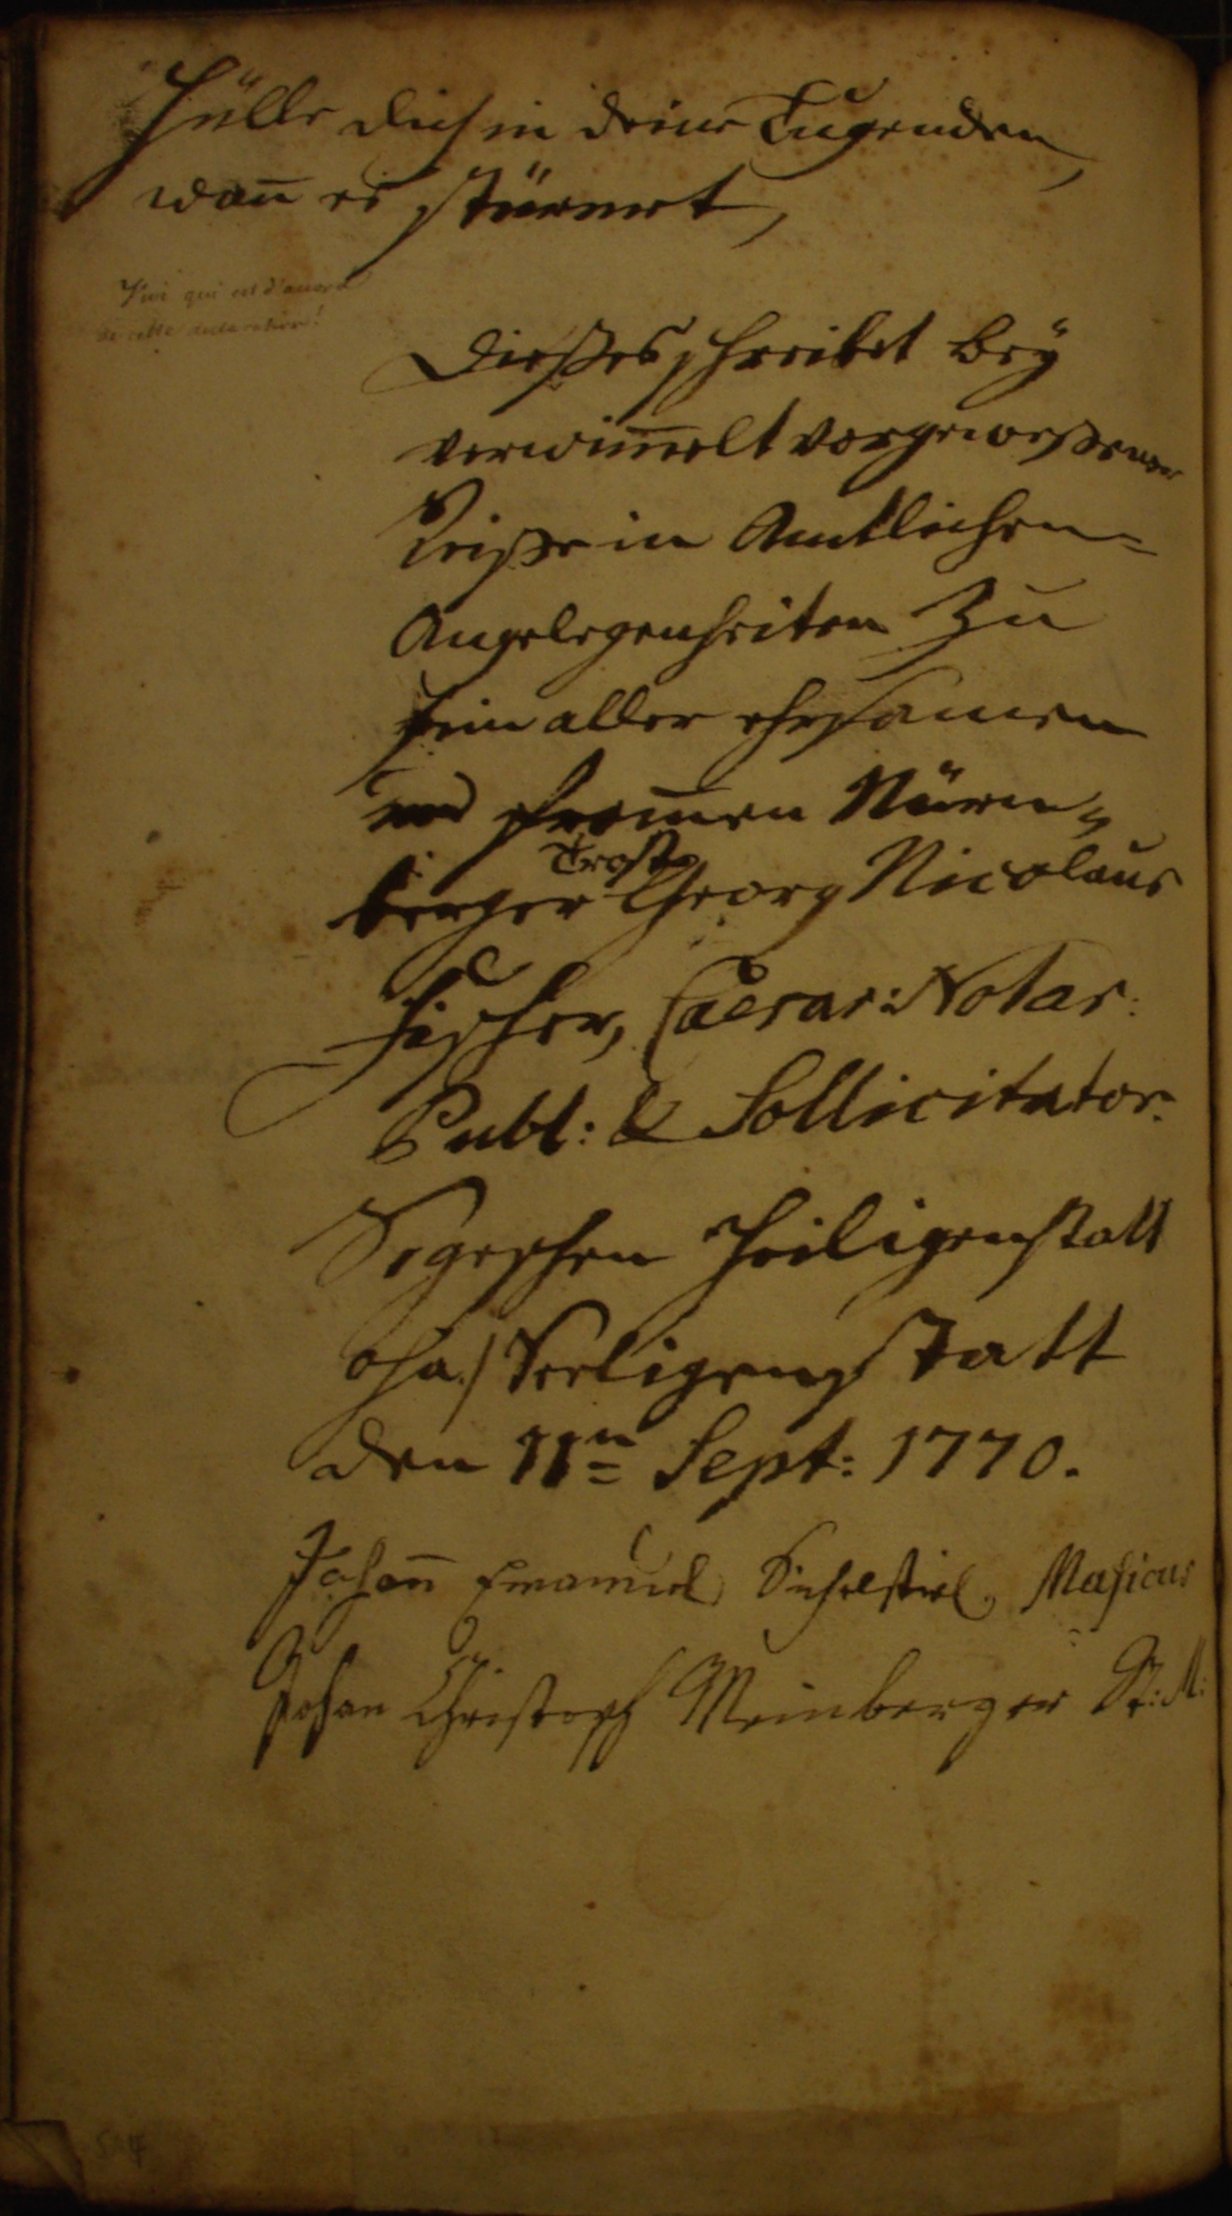 Hülle dich in deine Tugenden
wan̄ es stürmet,
qui est d'accord
de cette declaration!
Dießes schreibet bey
vorgeweßener
Reiße in Amtlichen
Angelegenheiten Zu
sein aller ehrsamen
und from̄en Nürn-
Trost
berger Georg Nicolaus
Fischer, Caesar: Notar:
Publ: & Sollicitator.
Heiligenstatt
Seeligenstatt
den 11n Sept: 1770.
Johan̄ Emanuel Sichelstiel, Musicus
Johan Christoph Weinberger